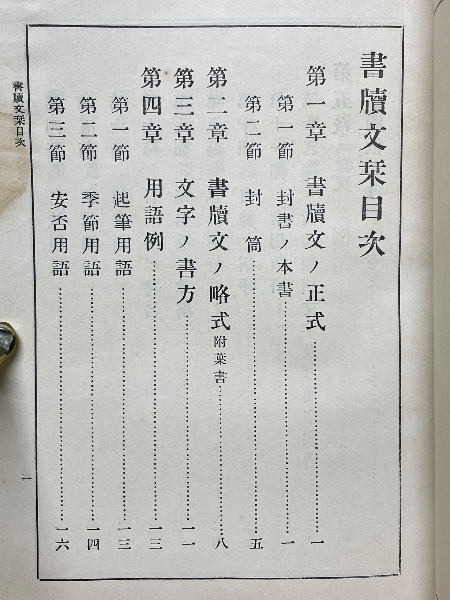 書牘文栞目次
第一章 書牘文ノ正式……一
第一節 封書ノ本書……一
第二節 封筒……五
第二章 書牘文ノ略式附葉書……八
第三章 文字ノ書方……一一
第四章 用語例……一三
第一節 起筆用語……一三
第二節 季節用語……一四
第三節 安否用語……一六
書牘文栞目次
一